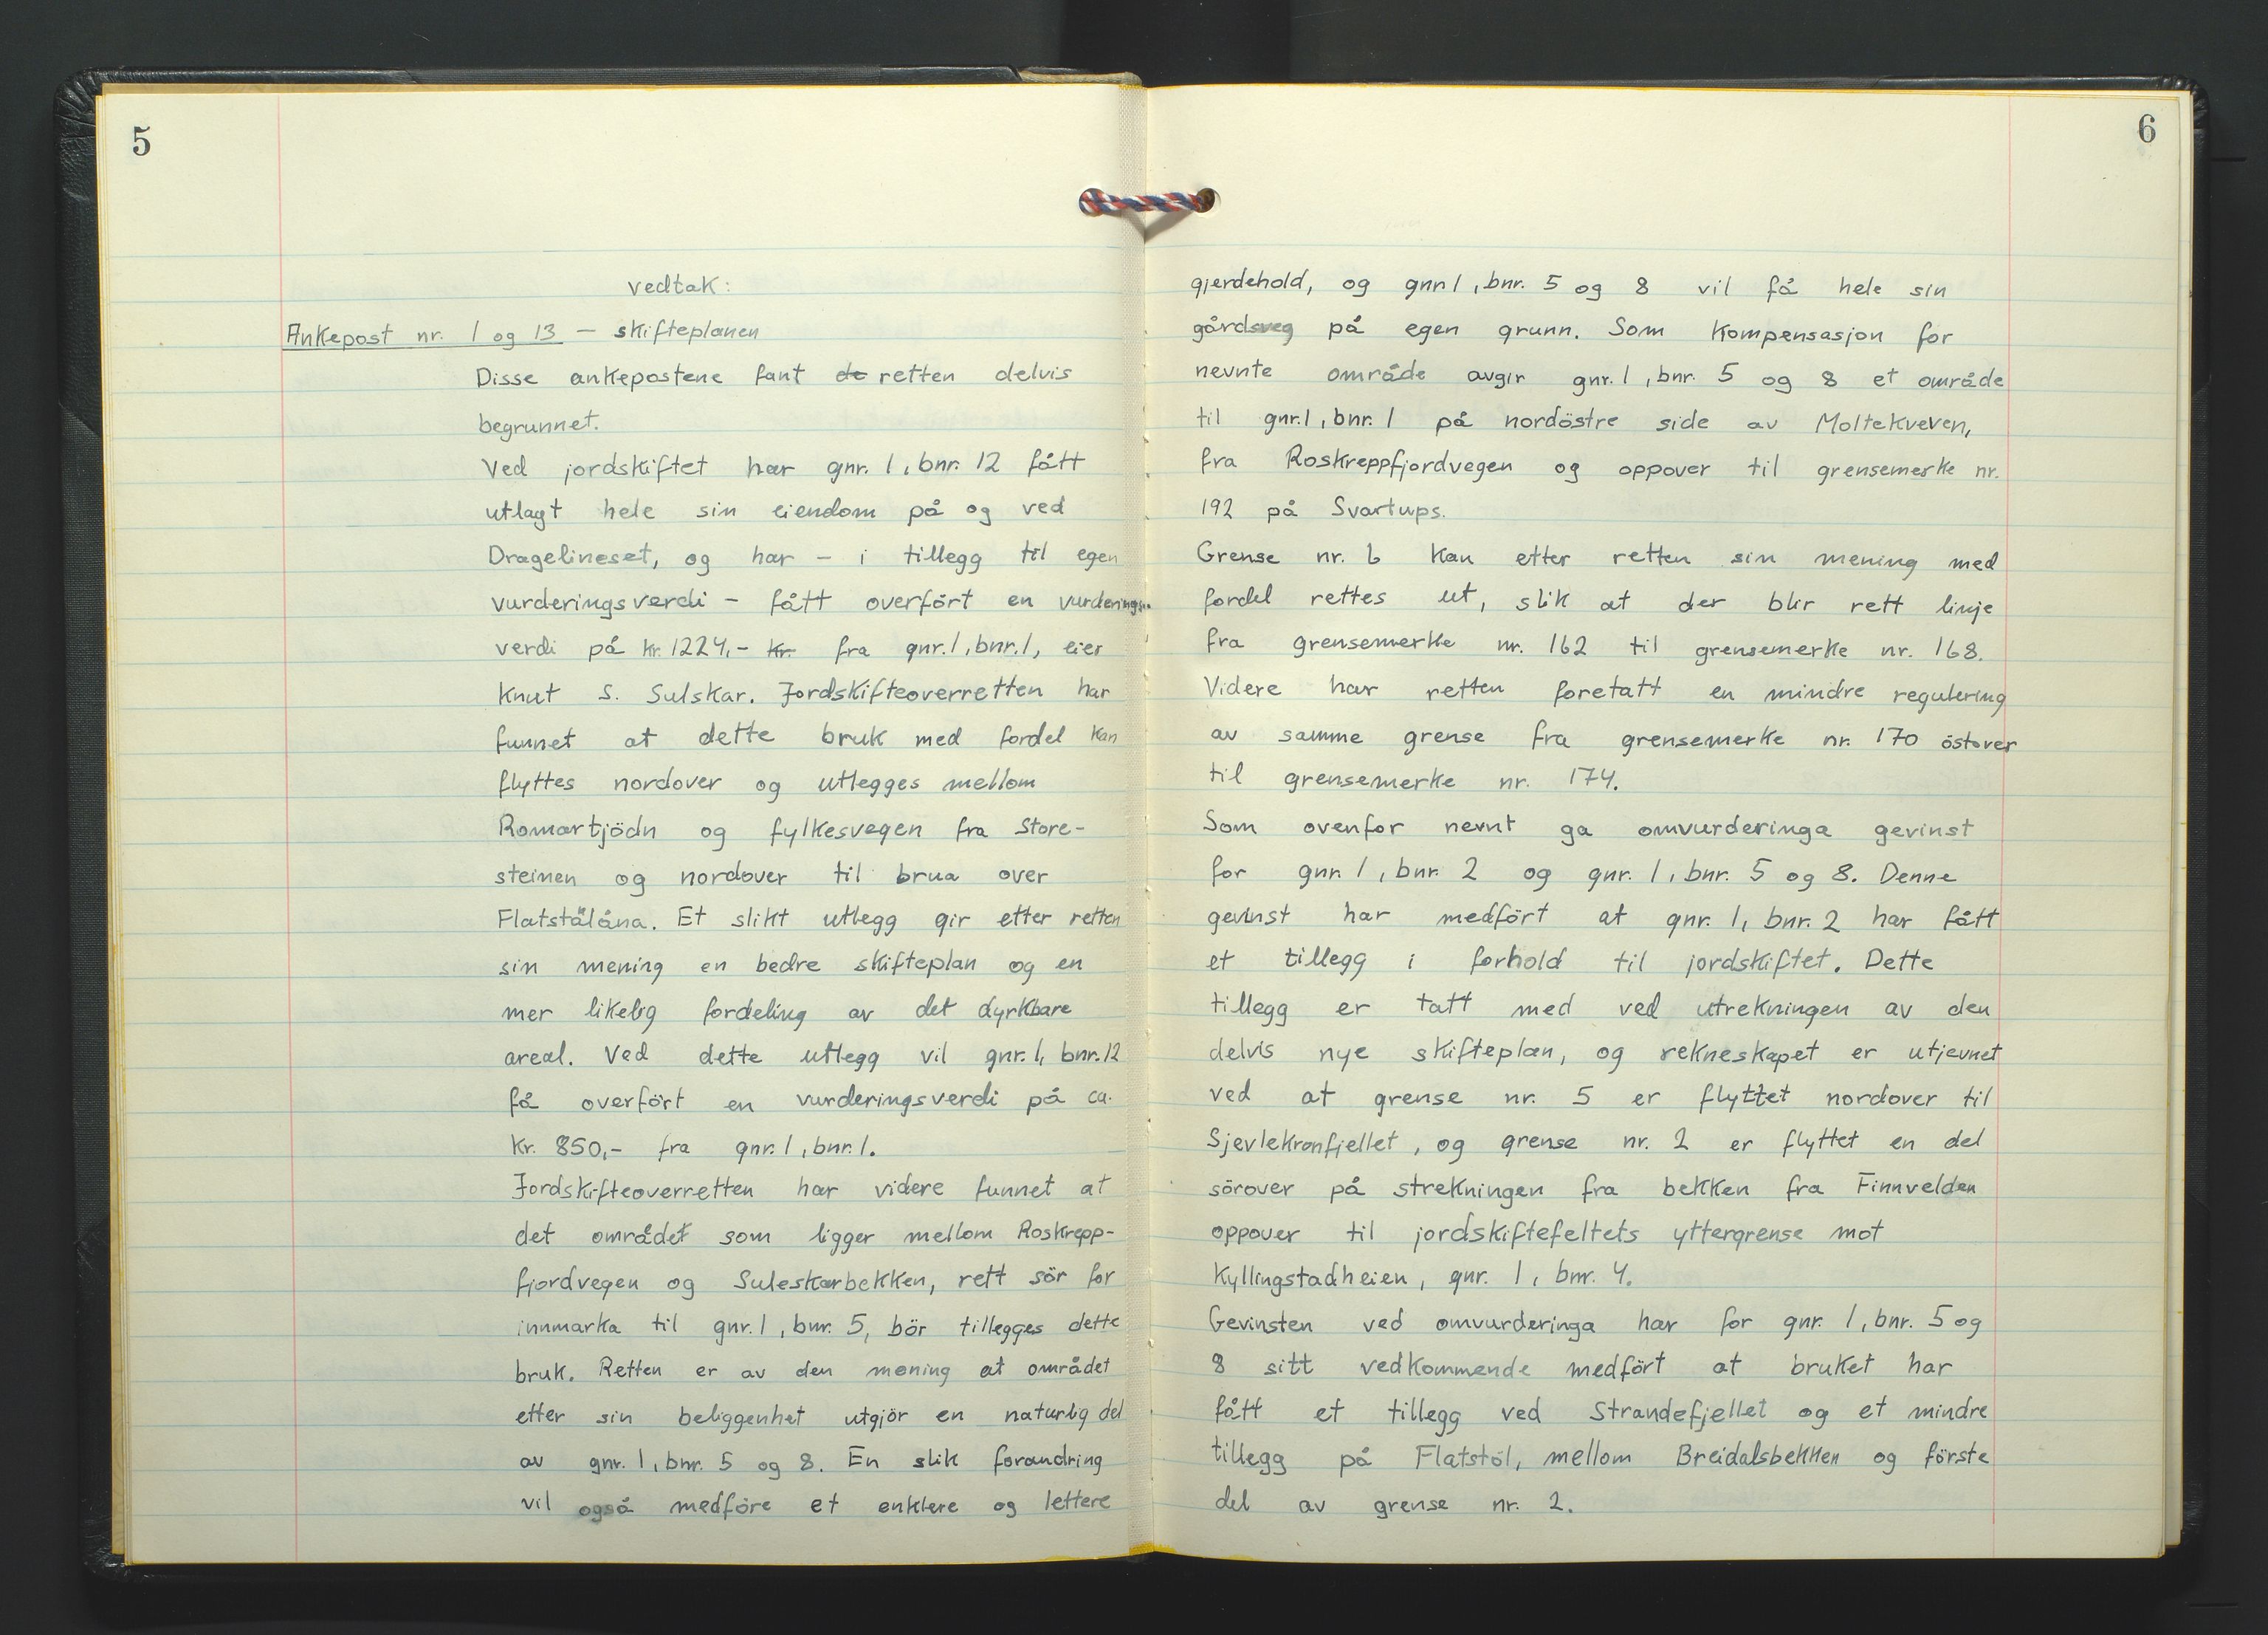 5
vedtak:
Ankepost nr. 1 og 13 - skifteplanen
Disse ankepostene fant de retten delvis
begrunnet.
Ved jordskiftet har gnr. 1, bnr. 12 fått
utlagt hele sin eiendom på og ved
Dragelineset, og har - i tillegg til egen
vurderingsverdi - fått overfört en vurderings-
verdi på kr. 1224,- kr. fra gnr. 1, bnr. 1, eier
Knut S. Sulskar. Jordskifteoverretten har
funnet at dette bruk med fordel kan
flyttes nordover og utlegges mellom
Romartjödn og fylkesvegen fra Store-
steinen og nordover til brua over
Flatstålåna. Et slikt utlegg gir etter retten
sin mening en bedre skifteplan og en
mer likelig fordeling av det dyrkbare
areal. Ved dette utlegg vil gnr. 1, bnr. 12
få overfört en vurderingsverdi på ca.
kr. 850,- fra gnr. 1, bnr. 1.
Jordskifteoverretten har videre funnet at
det området som ligger mellom Roskrepp-
fjordvegen og Suleskarbekken, rett sör for
innmarka til gnr. 1, bnr. 5, bör tillegges dette
bruk. Retten er av den mening at området
etter sin beliggenhet utgjör en naturlig del
av gnr. 1, bnr. 5 og 8. En slik forandring
vil også medföre et enklere og lettere
6
gjerdehold, og gnr 1, bnr. 5 og 8 vil få hele sin
gårdsveg på egen grunn. Som kompensasjon for
nevnte område avgir gnr. 1, bnr. 5 og 8 et område
til gnr. 1, bnr. 1 på nordöstre side av Moltekveven,
fra Roskreppfjordvegen og oppover til grensemerke nr.
192 på Svartups.
Grense nr. 6 kan etter retten sin mening med
fordel rettes ut, slik at der blir rett linje
fra grensemerke nr. 162 til grensemerke nr. 168.
Videre har retten foretatt en mindre regulering
av samme grense fra grensemerke nr. 170 östover
til grensemerke nr. 174.
Som ovenfor nevnt ga omvurderinga gevinst
for gnr. 1, bnr. 2 og gnr. 1, bnr. 5 og 8. Denne
gevinst har medfört at gnr. 1, bnr. 2 har fått
et tillegg i forhold til jordskiftet. Dette
tillegg er tatt med ved utrekningen av den
delvis nye skifteplan, og rekneskapet er utjevnet
ved at grense nr. 5 er flyttet nordover til
Sjevlekronfjellet, og grense nr. 2 er flyttet en del
sörover på strekningen fra bekken fra Finnvelden
oppover til jordskiftefeltets yttergrense mot
Kyllingstadheien, gnr. 1, bnr. 4.
Gevinsten ved omvurderinga har for gnr. 1, bnr. 5 og
8 sitt vedkommende medfört at bruket har
fått et tillegg ved Strandefjellet og et mindre
tillegg på Flatstöl, mellom Breidalsbekken og förste
del av grense nr. 2.